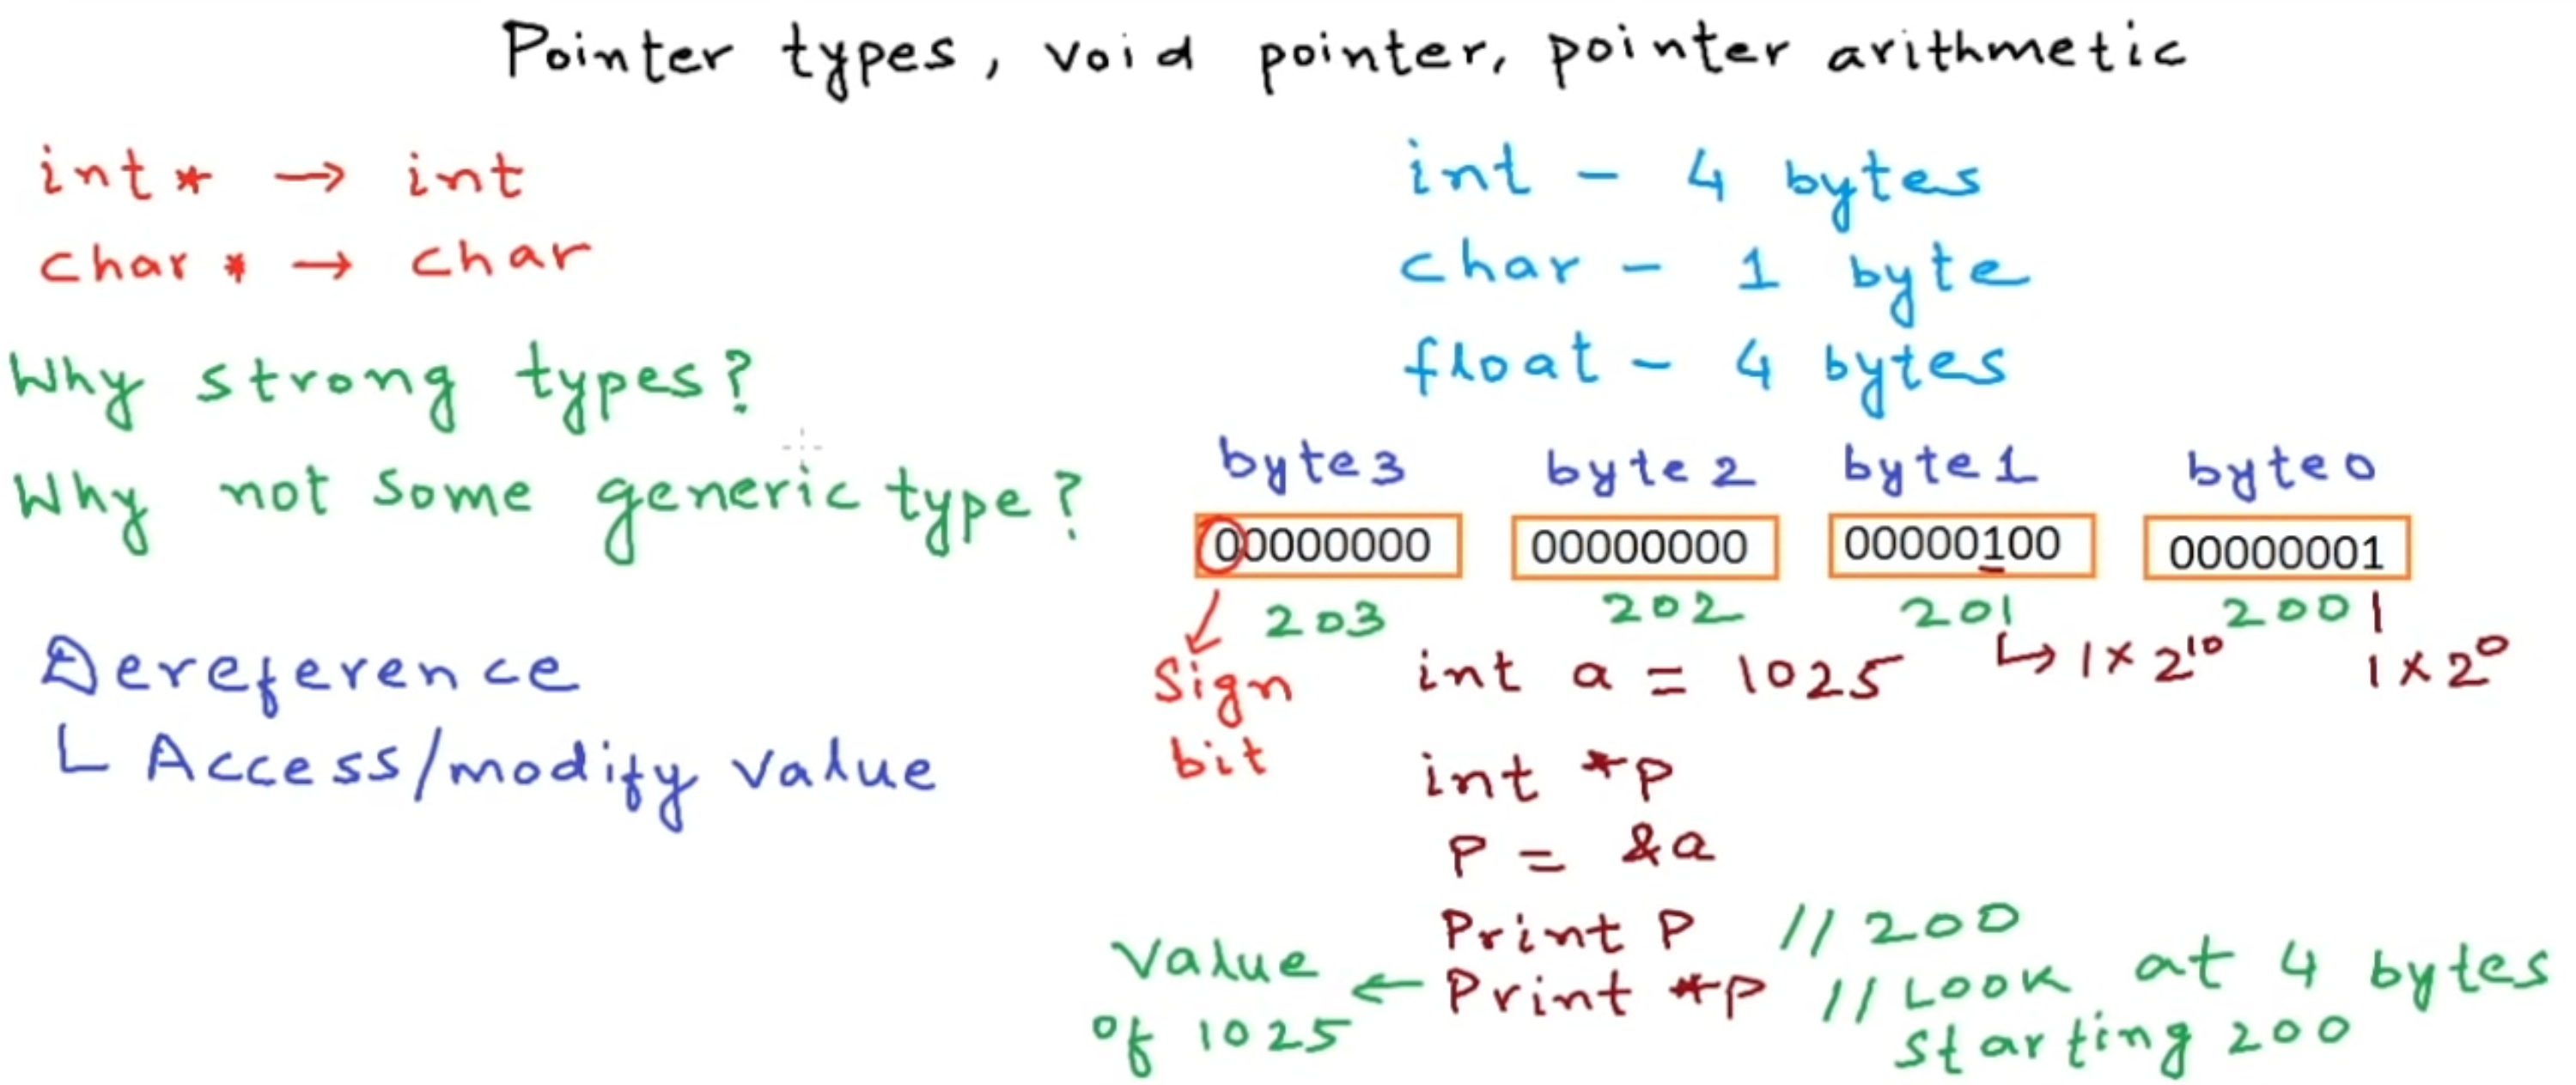 Pointer types, void pointer, pointer arithmetic
int* → int
char* → char
Why strong types?
Why not some generic type?
Dereference
└ Access/modify value
int - 4 bytes
char - 1 byte
float - 4 bytes
byte3 byte2 byte1 byte0
00000000 00000000 00000100 00000001
203 202 201 200
Sign bit
int a = 1025 ↳ 1×2¹⁰ 1×2⁰
int *p
P = &a
Print P // 200
Value of 1025 ← Print *p // Look at 4 bytes
starting 200